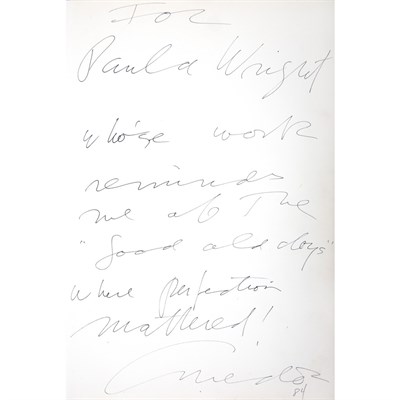 For
Paula Wright
whose work
reminds
me of The
"Good old days"
where perfection
mattered!
84